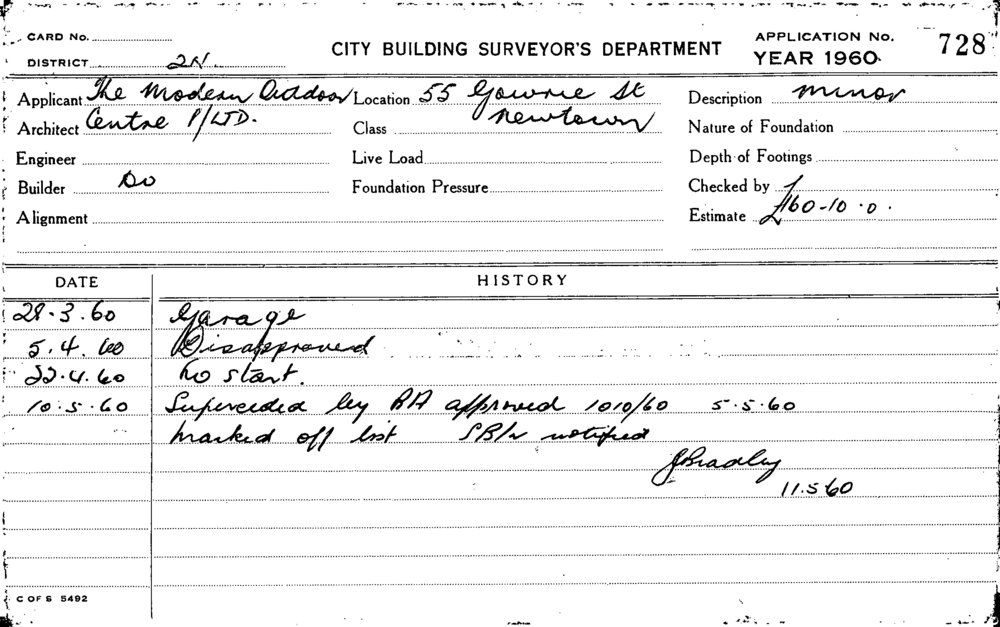 CARD No.
DISTRICT 2N
CITY BUILDING SURVEYOR'S DEPARTMENT
APPLICATION No.
YEAR 1960.
728
Applicant The Modern Outdoor
Architect Centre P/LTD.
Engineer
Builder Do
Alignment
Location 55 Gowrie St
Newtown
Class
Live Load
Foundation Pressure
Description minor
Nature of Foundation
Depth of Footings
Checked by
Estimate £160-10-0.
DATE HISTORY
28.3.60 Garage
5.4.60 Disapproved
22.4.60 No start.
10.5.60 Superceded by BA approved 1010/60 5.5.60
Marked off list notified
JBradley
11.5.60
C OF S 5492